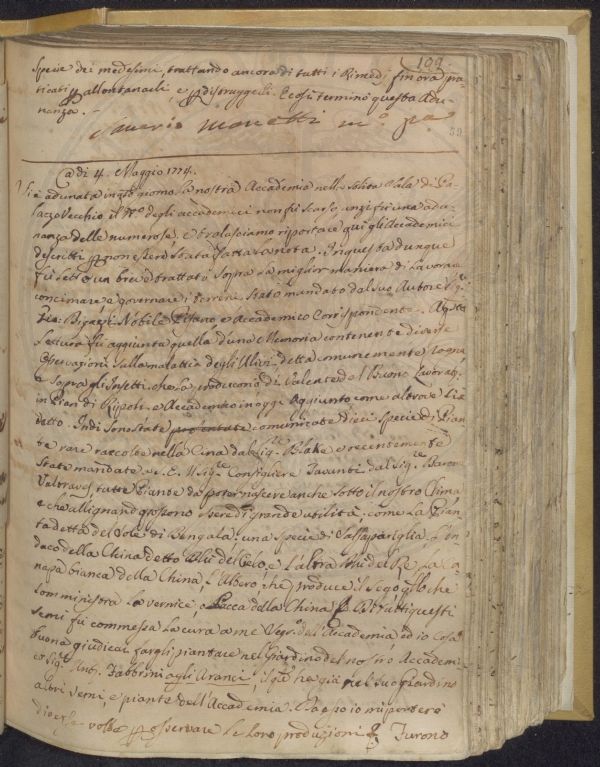 109
Specie dei medesimi, trattando ancora di tutti i Rimedi finora pra-
ticati p allontanarli e p distruggerli. E così terminò questa Adu-
nanza. -
Saverio Manetti
59
A di 4. Maggio 1774.
Si è adunata in giorno la nostra Accademia nelle solite Sala di Pa-
lazzo Vecchio il degli accademici non fù scarso, anzi fù una adu-
nanza delle numerose, e tralasciamo riportare quì gli Accademici
descritti p non essere stata fatta la nota. In questa dunque
fù letto un breve trattato sopra la miglior maniera di lavorare
concimare e governare i terreni stato mandato dal suo Autore Sig.
Bizarri Nobile Pisano e Accademico Corrispondente. A
lettura fù aggiunta quella d'una Memoria contenente diverse
Osservazioni sulla malattia degli Ulivi detta comunemente Rogna
e sopra gl'Insetti che la producono di Valente del Buono
in Pian di Ripoli e Accademico in oggi Aggiunto come altrove
detto. Indi sono state comunicate dieci specie di Pian-
te rare raccolte nella Cina dal Sig.re Blake e recentemente
state mandate a S. E. il Sig.re Consigliere Tavanti dal Sig.re Barone
Valtravers, tutte Piante da poter nascere anche sotto il nostro Clima
e che allignando possono essere di grande utilità, come la Pian-
ta detta del Sole di Bengala: una Specie di Salsapariglia: l'In-
daco della China detto Blù del Cielo, e l'altra Blù del Re, la Ca-
napa bianca della China, l'Albero che produce il sego, quello che
somministra la vernice, o Lacca della China Di tutti questi
semi fù commessa la cura a me Seg.o dell'Accademia, ed io cosa
buona giudicai fargli piantare nel Giardino del nostro Accadem-
co Sig.r Ant. Fabbrini agli Aranci, il qle ha già nel suo Giardino
altri semi, e piante dell'Accademia e là poso io mi porterò
diverse volte p osservare le loro produzioni Furono